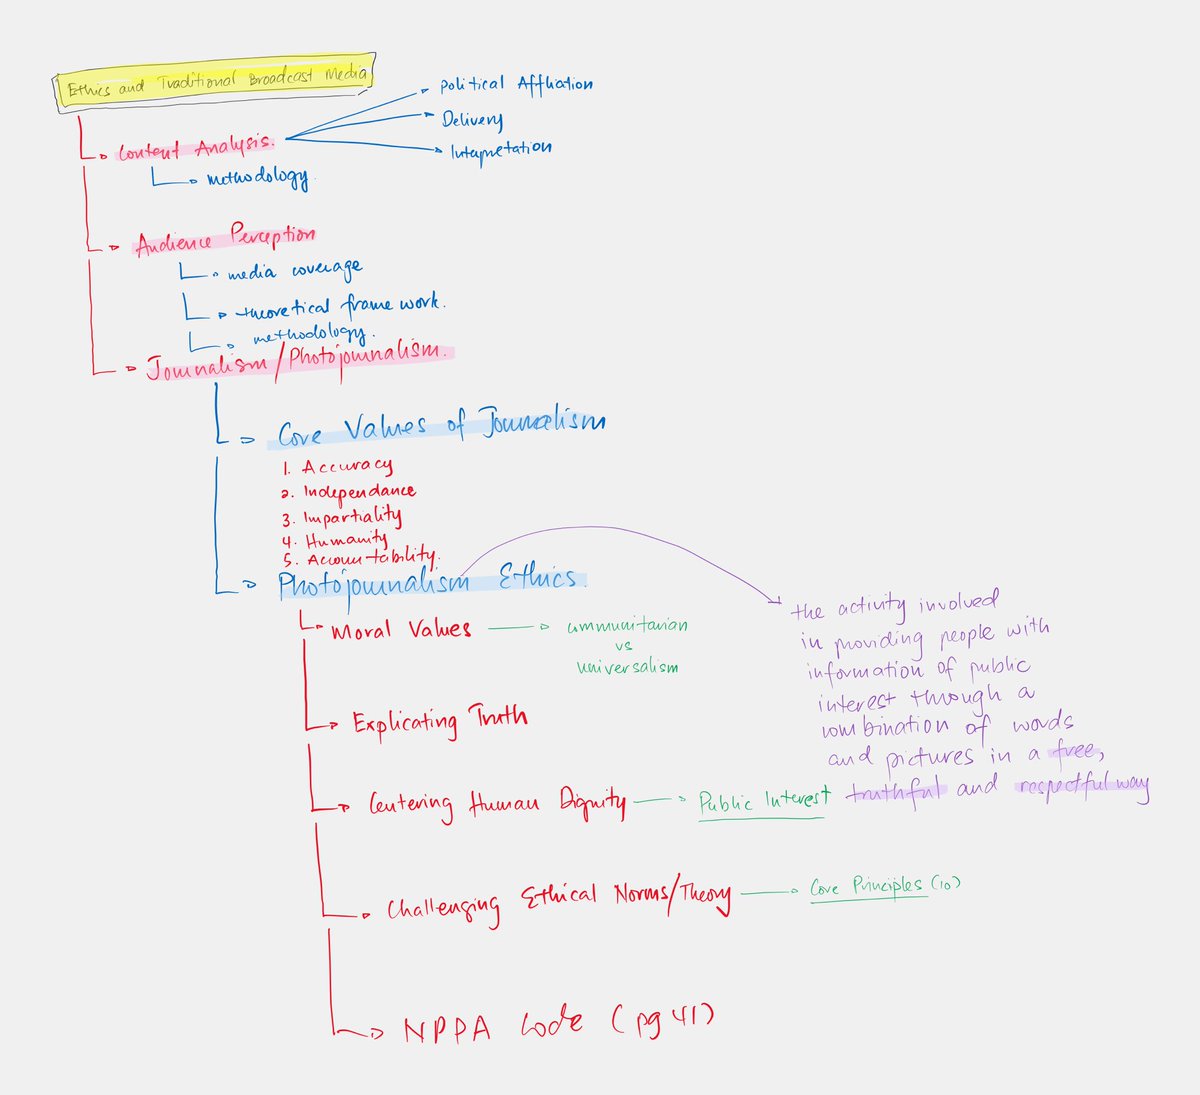 Ethics and Traditional Broadcast Media
Content Analysis.
Political Affliation
Delivery
Intepretation
methodology.
Audience Perception
media coverage
theoretical frame work.
methodology.
Journalism/Photojournalism.
Core Values of Journalism
1. Accuracy
2. Independance
3. Impartiality
4. Humanity
5. Accountability.
Photojournalism Ethics.
the activity involved
in providing people with
information of public
interest through a
combination of words
and pictures in a free,
truthful and respectful way
Moral Values
communitarian
vs
universalism
Explicating Truth
Centering Human Dignity
Public Interest
Challenging Ethical Norms/Theory
Core Principles (10)
NPPA Code (pg 41)